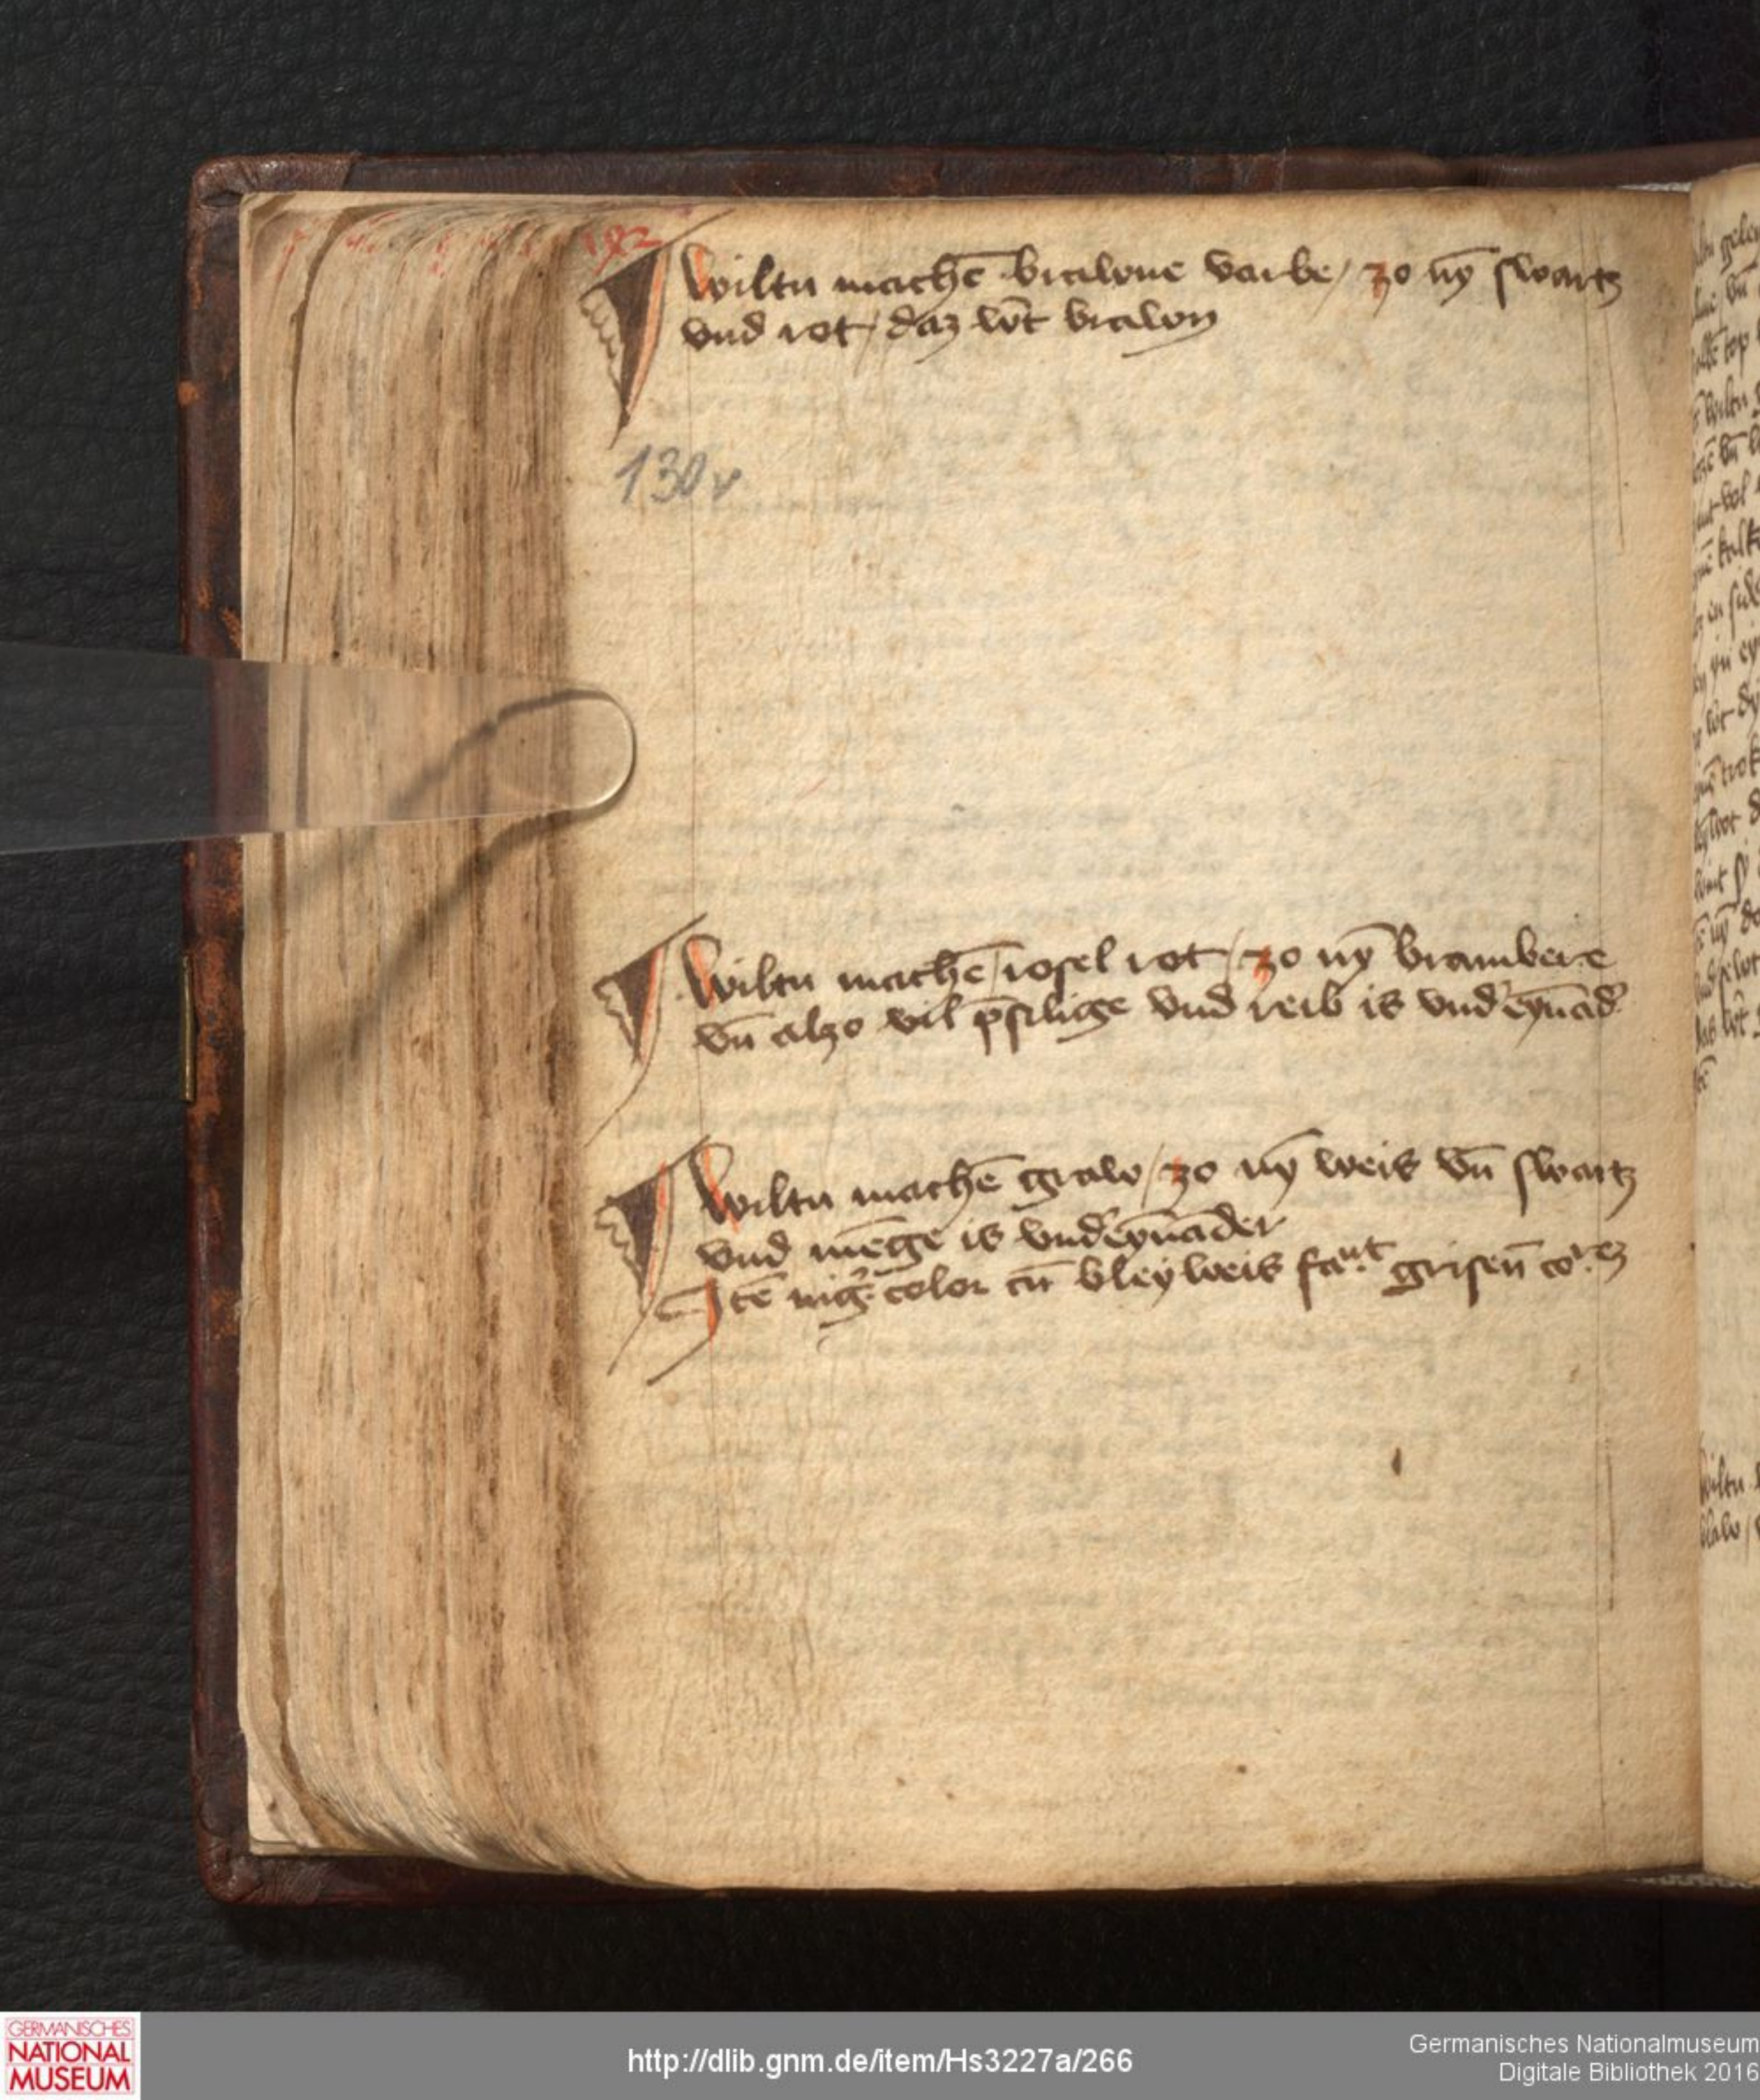 192
Wiltu machē brawne varbe / zo nȳ swartz
vnd rot / daz wͤt brawn
130v
Wiltu machē / rosel rot / zo nȳ brambere
vn̄ alzo vil p̄silige vnd reib is vnd' eynād'
Wiltu machē graw / zo nȳ weis vn̄ swartz
vnd mēge is vnd'eynāder
Itē nig' color cū bleyweis
GERMANISCHES
NATIONAL
MUSEUM
http://dlib.gnm.de/item/Hs3227a/266
Germanisches Nationalmuseum
Digitale Bibliothek 2016